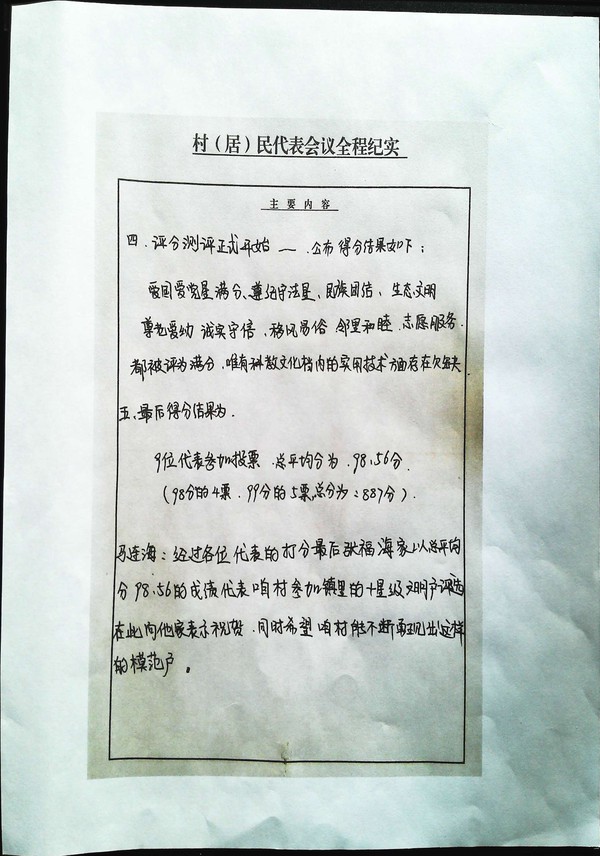 村（居）民代表会议全程纪实
主要内容
四、评分测评正式开始——公布得分结果如下：
爱国爱党星满分、遵纪守法星、民族团结、生态文明
尊老爱幼 诚实守信、移风易俗 邻里和睦、志愿服务.
都被评为满分，唯有科教文化档内的实用技术方面存在欠缺
五、最后得分结果为.
9位代表参加投票.总平均分为.98.56分.
（98分的4票.99分的5票,总分为：887分）.
马连海：经过各位代表的打分最后张福海家以总平均
分98.56的成绩代表咱村参加镇里的十星级文明户评选
在此向他家表示祝贺.同时希望咱村能不断涌现出这样
的模范户。